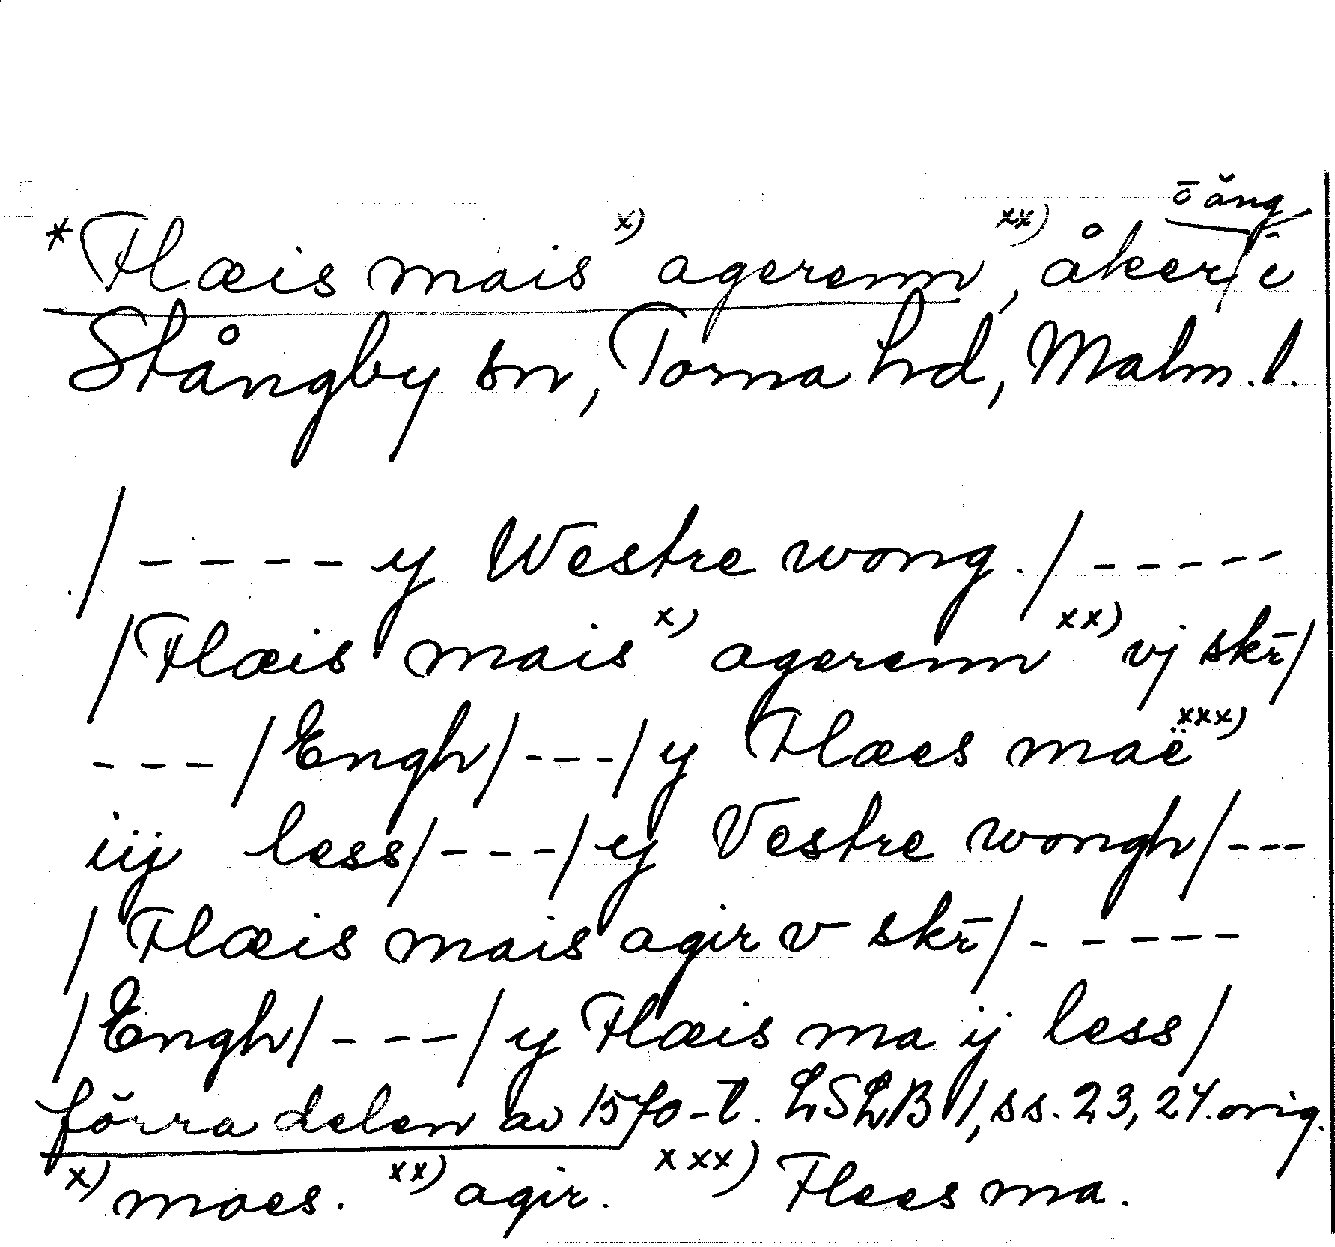 o äng
* Flæis mais x) agerenn xx), åker/ i
Stångby sn, Torna hd, Malm. l.
/ - - - - y Westre wong. / - - - - -
/ Flæis mais x) agerenn xx) vj skr̄ /
- - - / Engh / - - - / y Flæes maë xxx)
iij less / - - - / y Vestre wongh / - - -
/ Flæis mais agir v skr̄ / - - - - -
/ Engh / - - - / y Flæis ma ij less /
förra delen av 1570-t. LSLB 1, ss. 23, 24. orig.
x) maes. xx) agir. xxx) Flees ma.